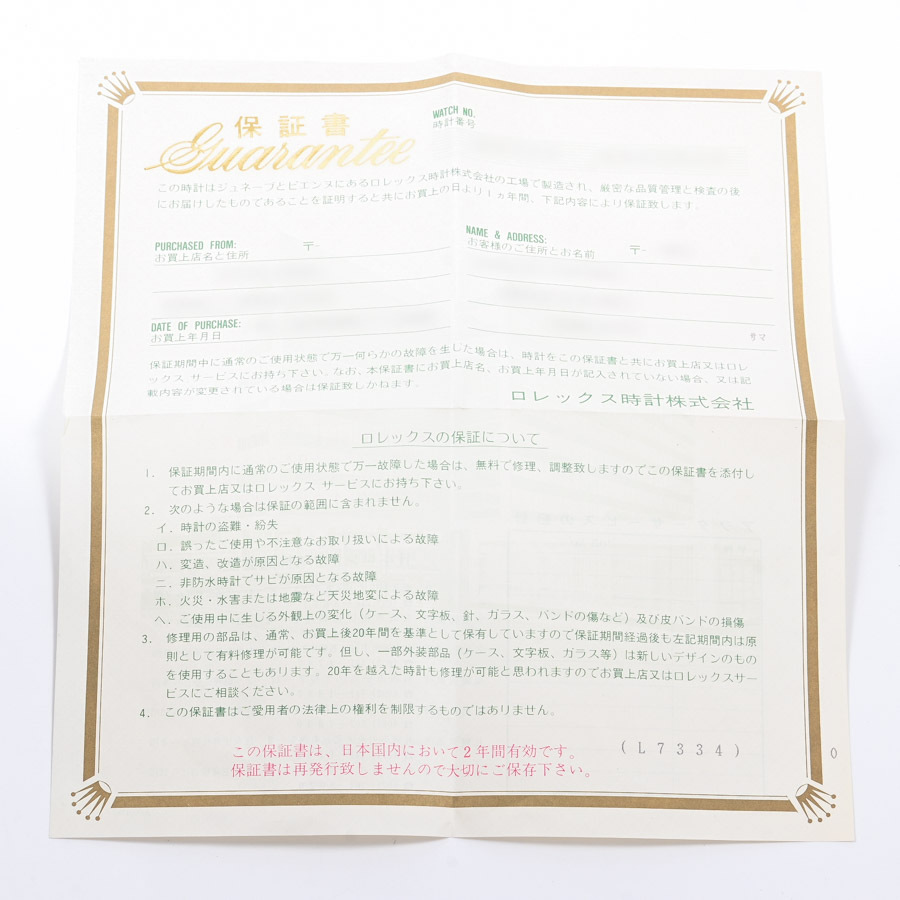 保証書
Guarantee
WATCH NO.
時計番号
この時計はジュネーブとビエンヌにあるロレックス時計株式会社の工場で製造され、厳密な品質管理と検査の後
にお届けしたものであることを証明すると共にお買上の日より1ヵ年間、下記内容により保証致します。
PURCHASED FROM:
お買上店名と住所
〒-
NAME & ADDRESS:
お客様のご住所とお名前
〒-
DATE OF PURCHASE:
お買上年月日
サマ
保証期間中に通常のご使用状態で万一何らかの故障を生じた場合は、時計をこの保証書と共にお買上店又はロレ
ックス サービスにお持ち下さい。なお、本保証書にお買上店名、お買上年月日が記入されていない場合、又は記
載内容が変更されている場合は保証致しかねます。
ロレックス時計株式会社
ロレックスの保証について
1. 保証期間内に通常のご使用状態で万一故障した場合は、無料で修理、調整致しますのでこの保証書を添付し
てお買上店又はロレックス サービスにお持ち下さい。
2. 次のような場合は保証の範囲に含まれません。
イ. 時計の盗難・紛失
ロ. 誤ったご使用や不注意なお取り扱いによる故障
ハ. 変造、改造が原因となる故障
ニ. 非防水時計でサビが原因となる故障
ホ. 火災・水害または地震など天災地変による故障
ヘ. ご使用中に生じる外観上の変化（ケース、文字板、針、ガラス、バンドの傷など）及び皮バンドの損傷
3. 修理用の部品は、通常、お買上後20年間を基準として保有していますので保証期間経過後も左記期間内は原
則として有料修理が可能です。但し、一部外装部品（ケース、文字板、ガラス等）は新しいデザインのもの
を使用することもあります。20年を越えた時計も修理が可能と思われますのでお買上店又はロレックスサー
ビスにご相談ください。
4. この保証書はご愛用者の法律上の権利を制限するものではありません。
この保証書は、日本国内において2年間有効です。
保証書は再発行致しませんので大切にご保存下さい。
(L7334)
0